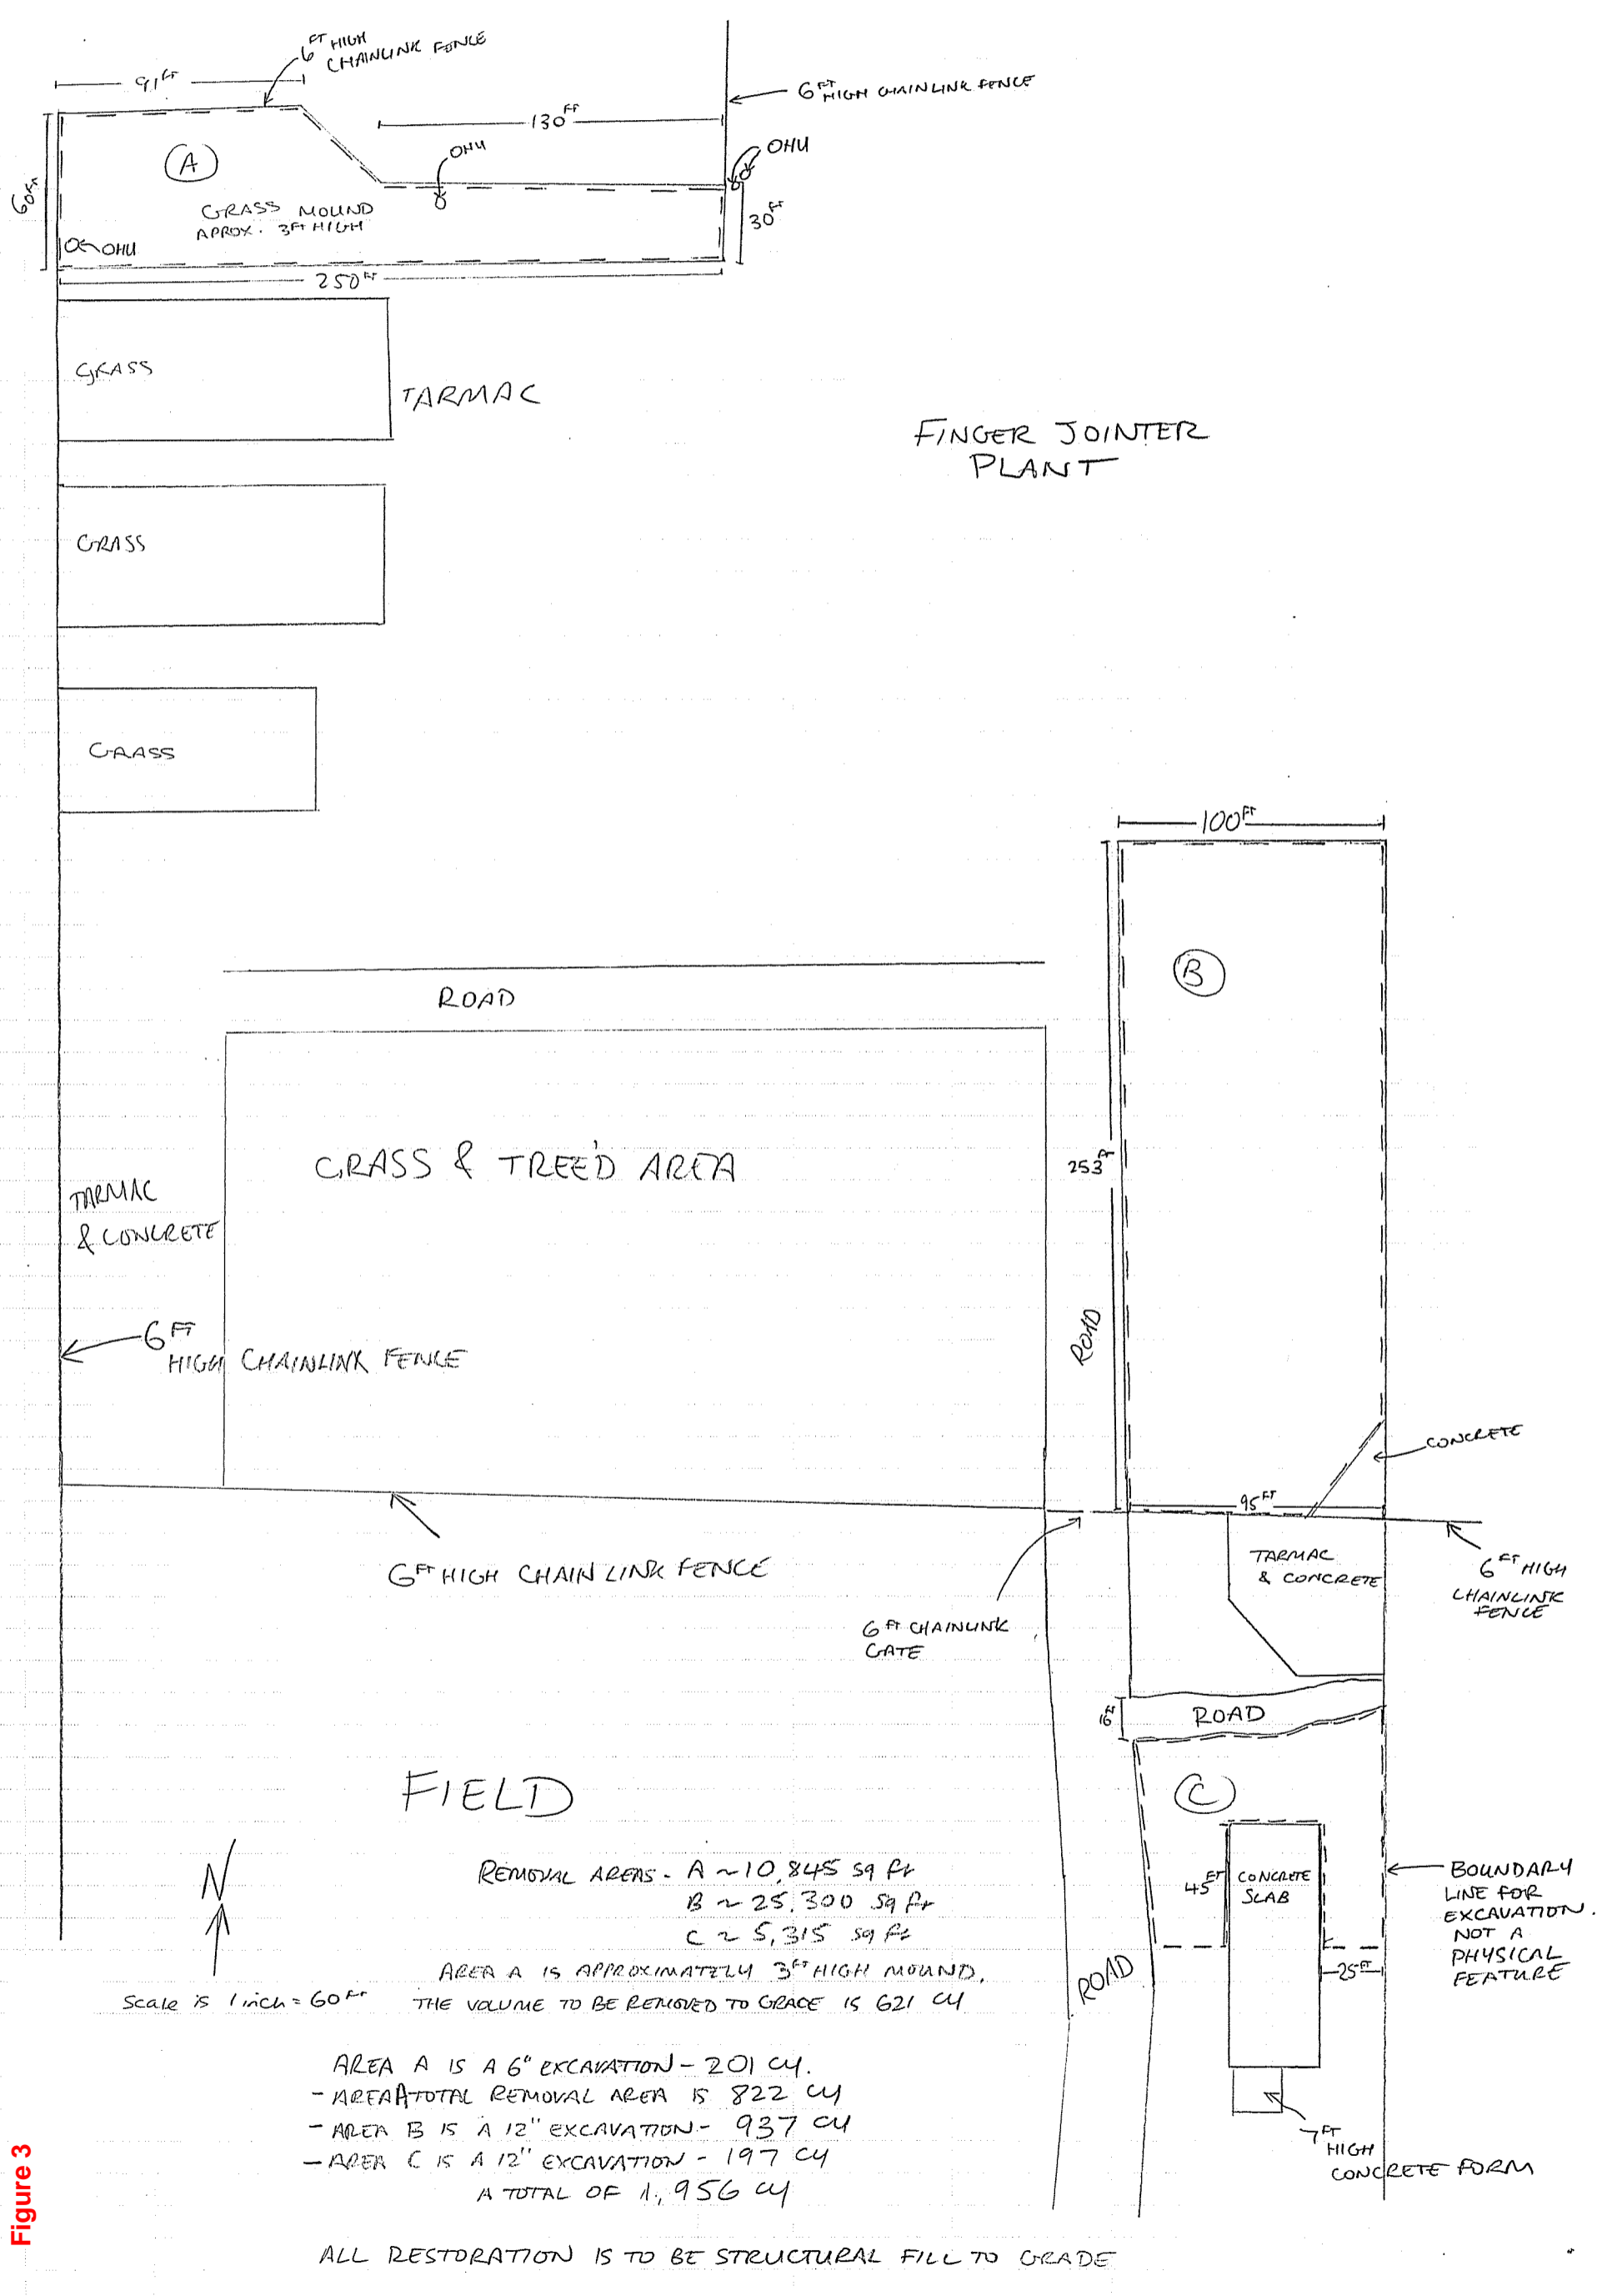 6 FT HIGH
CHAINLINK FENCE
91 FT
6 FT HIGH CHAINLINK FENCE
130 FT
OHU
OHU
A
60 FT
GRASS MOUND
APROX. 3 FT HIGH
30 FT
OHU
250 FT
GRASS
TARMAC
FINGER JOINTER
PLANT
GRASS
GRASS
100 FT
B
ROAD
GRASS & TREE'D AREA
253 FT
TARMAC
& CONCRETE
ROAD
6 FT
HIGH CHAINLINK FENCE
CONCRETE
95 FT
6 FT HIGH CHAIN LINK FENCE
TARMAC
& CONCRETE
6 FT HIGH
CHAINLINK
FENCE
6 FT CHAINLINK
GATE
16 FT
ROAD
FIELD
C
N
REMOVAL AREAS - A ~ 10,845 sq ft
B ~ 25,300 sq ft
C ~ 5,315 sq ft
45 FT
CONCRETE
SLAB
BOUNDARY
LINE FOR
EXCAVATION.
NOT A
PHYSICAL
FEATURE
25 FT
ROAD
AREA A IS APPROXIMATELY 3 FT HIGH MOUND.
Scale is 1 inch = 60 FT
THE VOLUME TO BE REMOVED TO GRADE IS 621 CY
AREA A IS A 6" EXCAVATION - 201 CY.
- AREA A TOTAL REMOVAL AREA IS 822 CY
- AREA B IS A 12" EXCAVATION - 937 CY
- AREA C IS A 12" EXCAVATION - 197 CY
A TOTAL OF 1,956 CY
7 FT
HIGH
CONCRETE FORM
ALL RESTORATION IS TO BE STRUCTURAL FILL TO GRADE
Figure 3